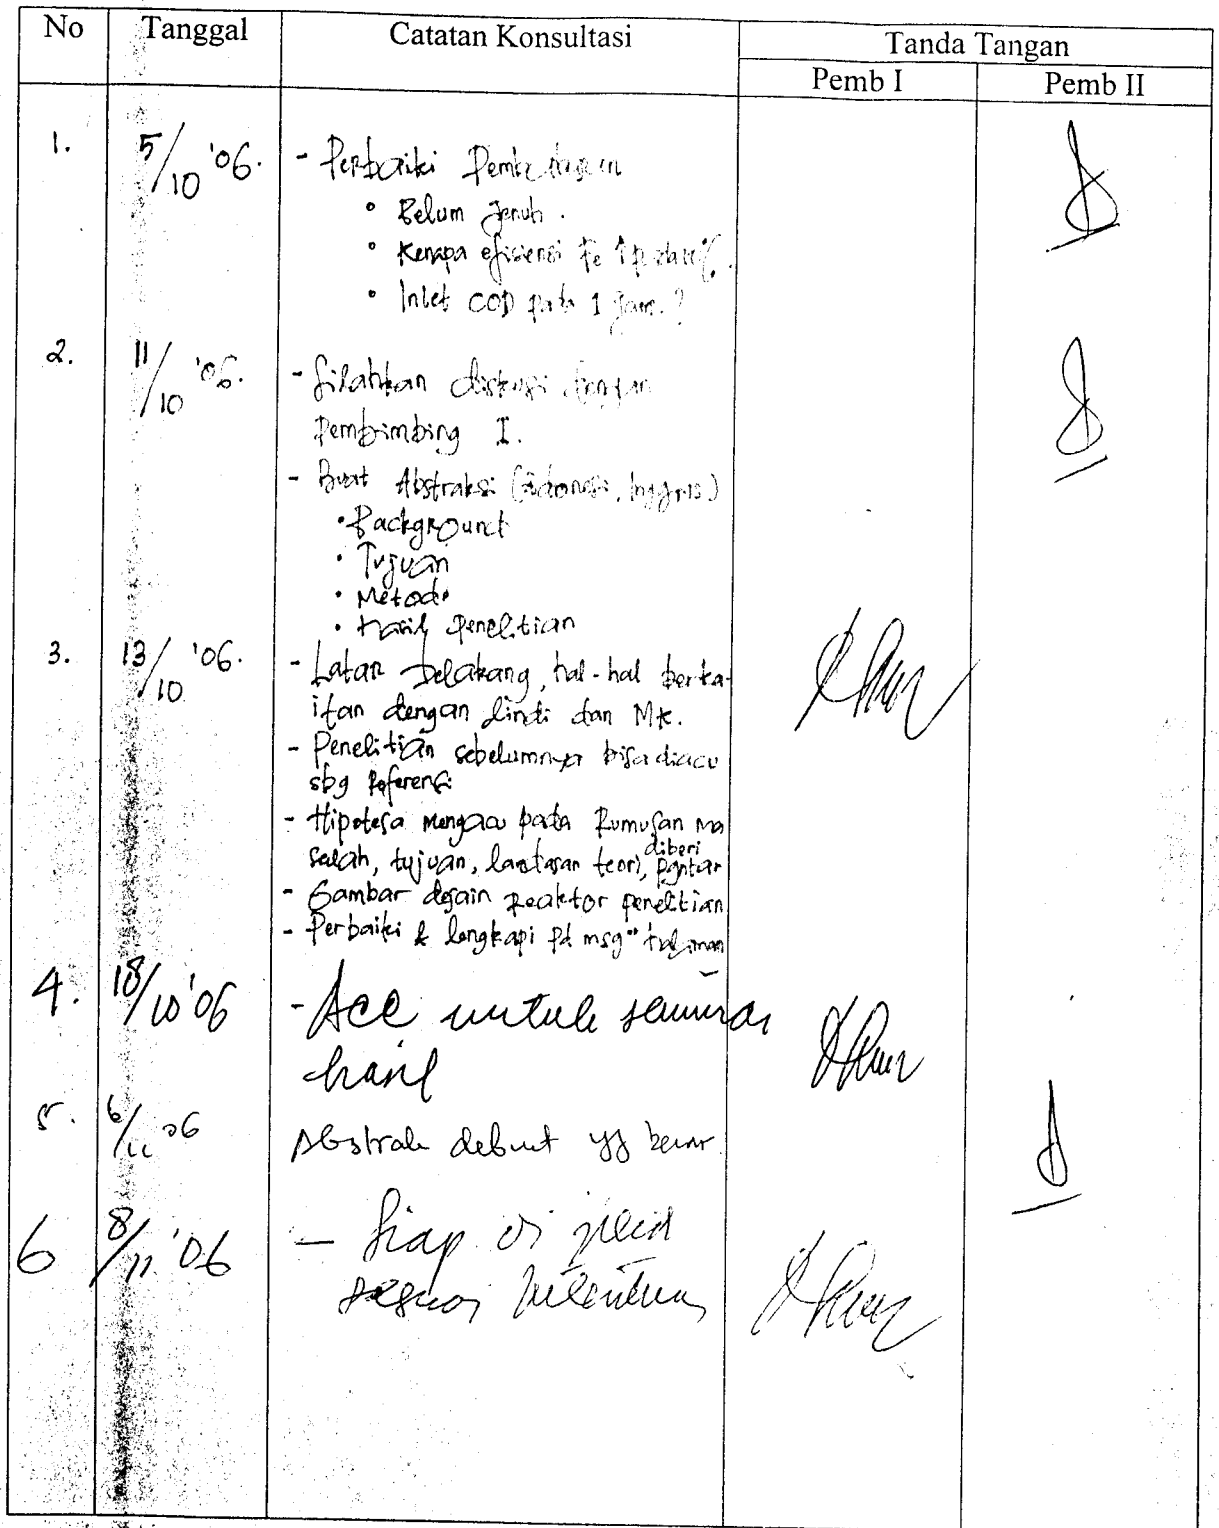 No Tanggal Catatan Konsultasi Tanda Tangan
Pemb I Pemb II
1. 5/10 '06. - Perbaiki Pembahasan
• Belum Jenuh.
• Kenapa efisiensi Fe
• Inlet COD pada 1 jam.?
2. 11/10 '06. - Silahkan diskusi dengan
Pembimbing I.
- Buat Abstraksi (Indonesia, Inggris)
• Background
• Tujuan
• Metode
• Hasil Penelitian
3. 13/10 '06. - Latar Belakang, hal-hal berka-
itan dengan lindi dan
- Penelitian sebelumnya bisa diacu
sbg Referensi
- Hipotesa mengacu pada Rumusan ma
salah, tujuan, landasan teori, diberi pgntar
- Gambar desain Reaktor penelitian
- Perbaiki & lengkapi pd msg" halaman
4. 18/10 '06 - Acc untuk seminar
hasil
5. 6/11 06 Abstrak debuat yg benar
6 8/11 '06 - Siap di
sesuai